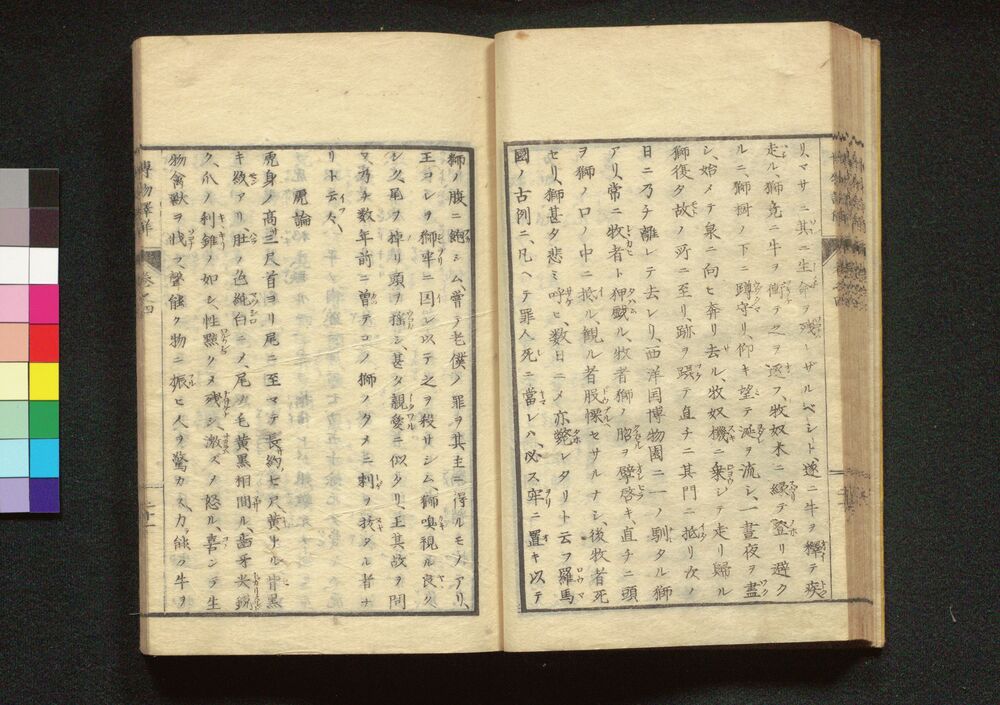 リ、マサニ其ニ生命ヲ残サザルベシト、遂ニ牛ヲ釋テ疾
走ル、獅竟ニ牛ヲ俥テ之ヲ逐フ、牧奴木ニ縁テ登リ避ク
ルニ、獅樹ノ下ニ蹲守リ、仰キ望テ涎ヲ流シ、一晝夜ヲ盡
シ、始メテ泉ニ向ヒ奔リ去ル、牧奴機ニ乗シテ走リ歸ル
獅復タ故ノ所ニ至リ、跡ヲ躡テ直チニ其門ニ抵リ次ノ
日ニ乃チ離レテ去レリ、西洋国博物園ニ一ノ馴タル獅
アリ、常ニ牧者ト狎戲ル、牧者獅ノ腭ヲ擘啓キ、直チニ頭
ヲ獅ノ口ノ中ニ抵ル観ル者股慄セサルナシ、後牧者死
セリ、獅甚タ悲ミ呼ヒ、数日ニ乄亦斃レタリト云フ羅馬
國ノ古例ニ、凡ヘテ罪人死ニ當レハ、必ス牢ニ置キ以テ
獅ノ腹ニ飽シム、曽テ老僕ノ罪ヲ其主ニ得ルモノアリ、
王コレヲ獅牢ニ囚レ以テ之ヲ殺サシム獅嗅視ル良ク
シク尾ヲ掉リ頭ヲ揺シ、甚タ親愛ニ似タリ、王其故ヲ問
フ、乃チ数年前ニ曽テコノ獅ノタメニ刺ヲ抜タル者ナ
リト云々
虎論
虎身ノ高三尺首ヨリ尾ニ至マテ長約七尺、黄リル背黒
キ紋アリ、肚ノ色純白ニ乄、尾ノ毛黄黒相間ル、歯牙尖鋭
ク、爪ノ利錐ノ如シ、性黠ク乄残シ、激ズ乄怒ル、喜ンデ生
物禽獸ヲ戕フ聲能ク物ニ振ヒ人ヲ驚カス、力能ク牛ヲ
博物
巻之四